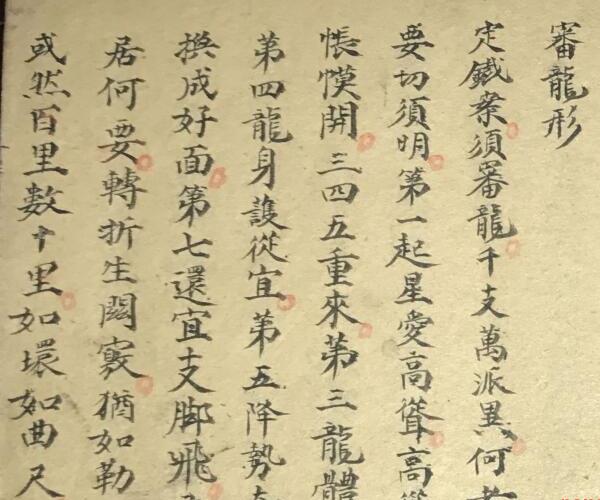 審龍形
定鐵案須審龍千支萬派異何
要切須明第一起星愛高聳高
帳幙開三四五重來第三龍體
第四龍身護從宜第五降勢
換成好面第七還宜支脚飛
居何要轉折生闊窽猶如勒
或然百里數十里如環如曲尺